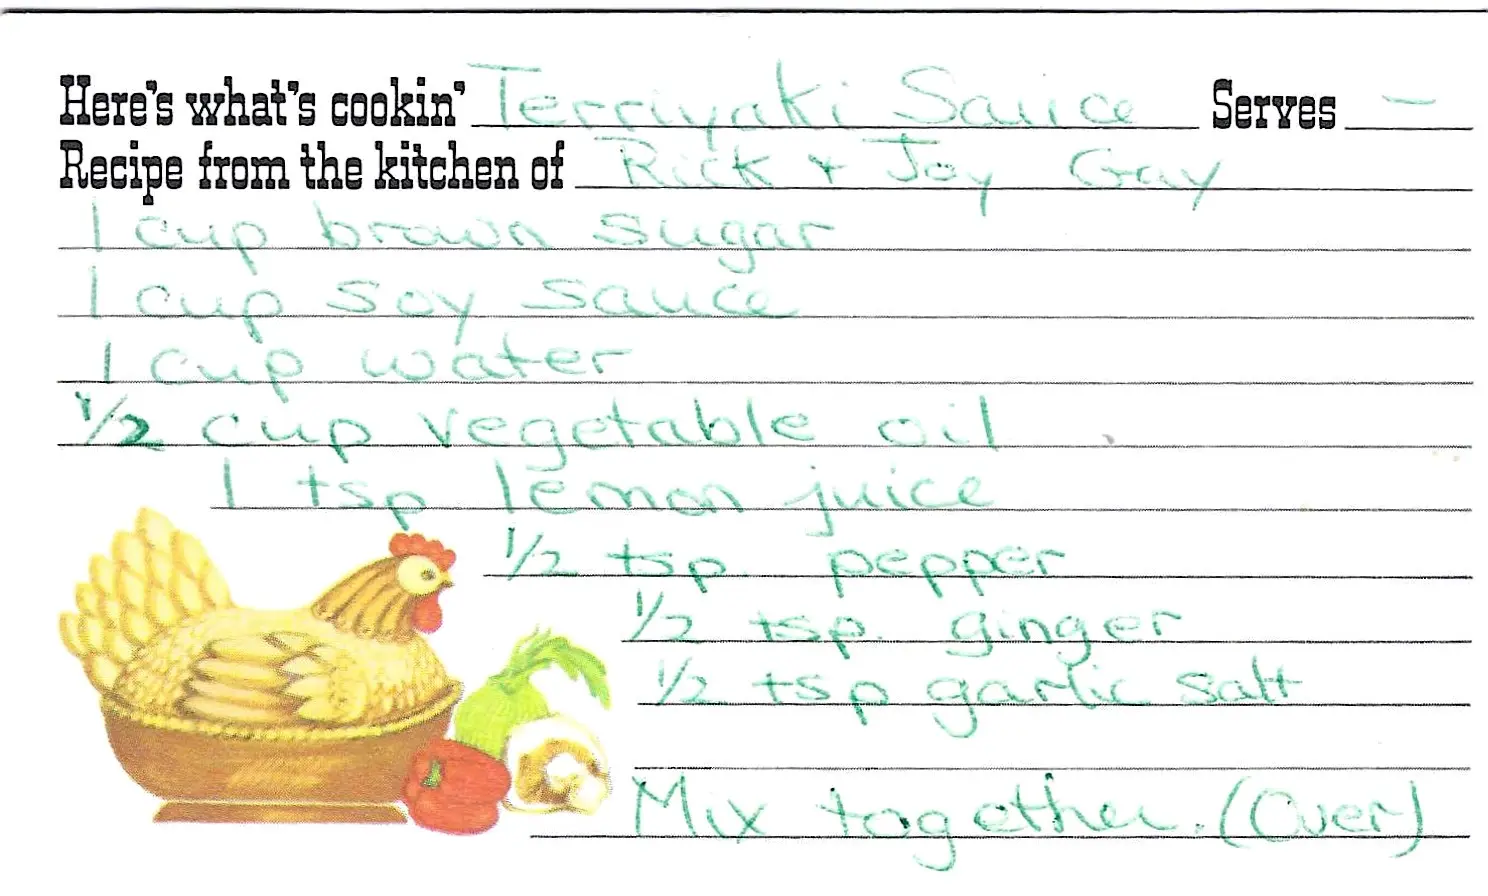 Here's what's cookin' Terriyaki Sauce Serves —
Recipe from the kitchen of Rick + Joy Gay
1 cup brown sugar
1 cup soy sauce
1 cup water
1/2 cup vegetable oil
1 tsp lemon juice
1/2 tsp. pepper
1/2 tsp. ginger
1/2 tsp garlic salt
Mix together. (Over)